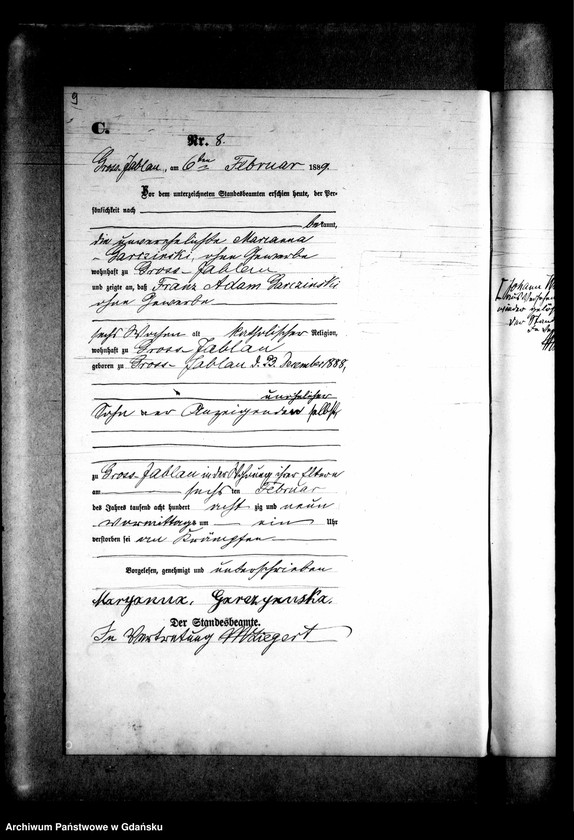 9
C.
Nr. 8.
Gross-Jablau, am 6ten Februar 1889.
Vor dem unterzeichneten Standesbeamten erschien heute, der Per-
sönlichkeit nach
bekannt,
die unverehelichte Marianna
Garczinski, ohne Gewerbe
wohnhaft zu Gross-Jablau
und zeigte an, daß Franz Adam Garczinski
ohne Gewerbe
sechs Wochen alt katholischer Religion,
wohnhaft zu Gross-Jablau
geboren zu Gross-Jablau d. 23. Dezember 1888,
unehelicher
Sohn der Anzeigenden selbst
zu Gross-Jablau in der Wohnung ihrer Eltern
am sechs ten Februar
des Jahres tausend acht hundert acht zig und neun
Vormittags um ein Uhr
verstorben sei an Krämpfen
Vorgelesen, genehmigt und unterschrieben
Maryanna Garczynska.
Der Standesbeamte.
In Vertretung
Johann
wieder
der Stand
Archiwum Państwowe w Gdańsku